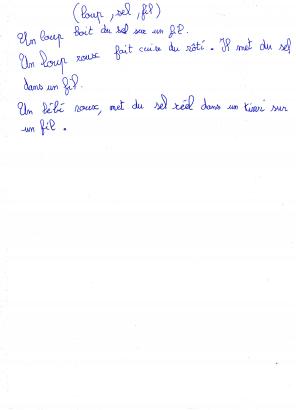 (loup, sel, fil)
Un loup boit du sel sur un fil.
Un loup roux fait cuire du rôti. Il met du sel
dans un fil.
Un bébé roux, met du sel réel dans un tiroir sur
un fil.